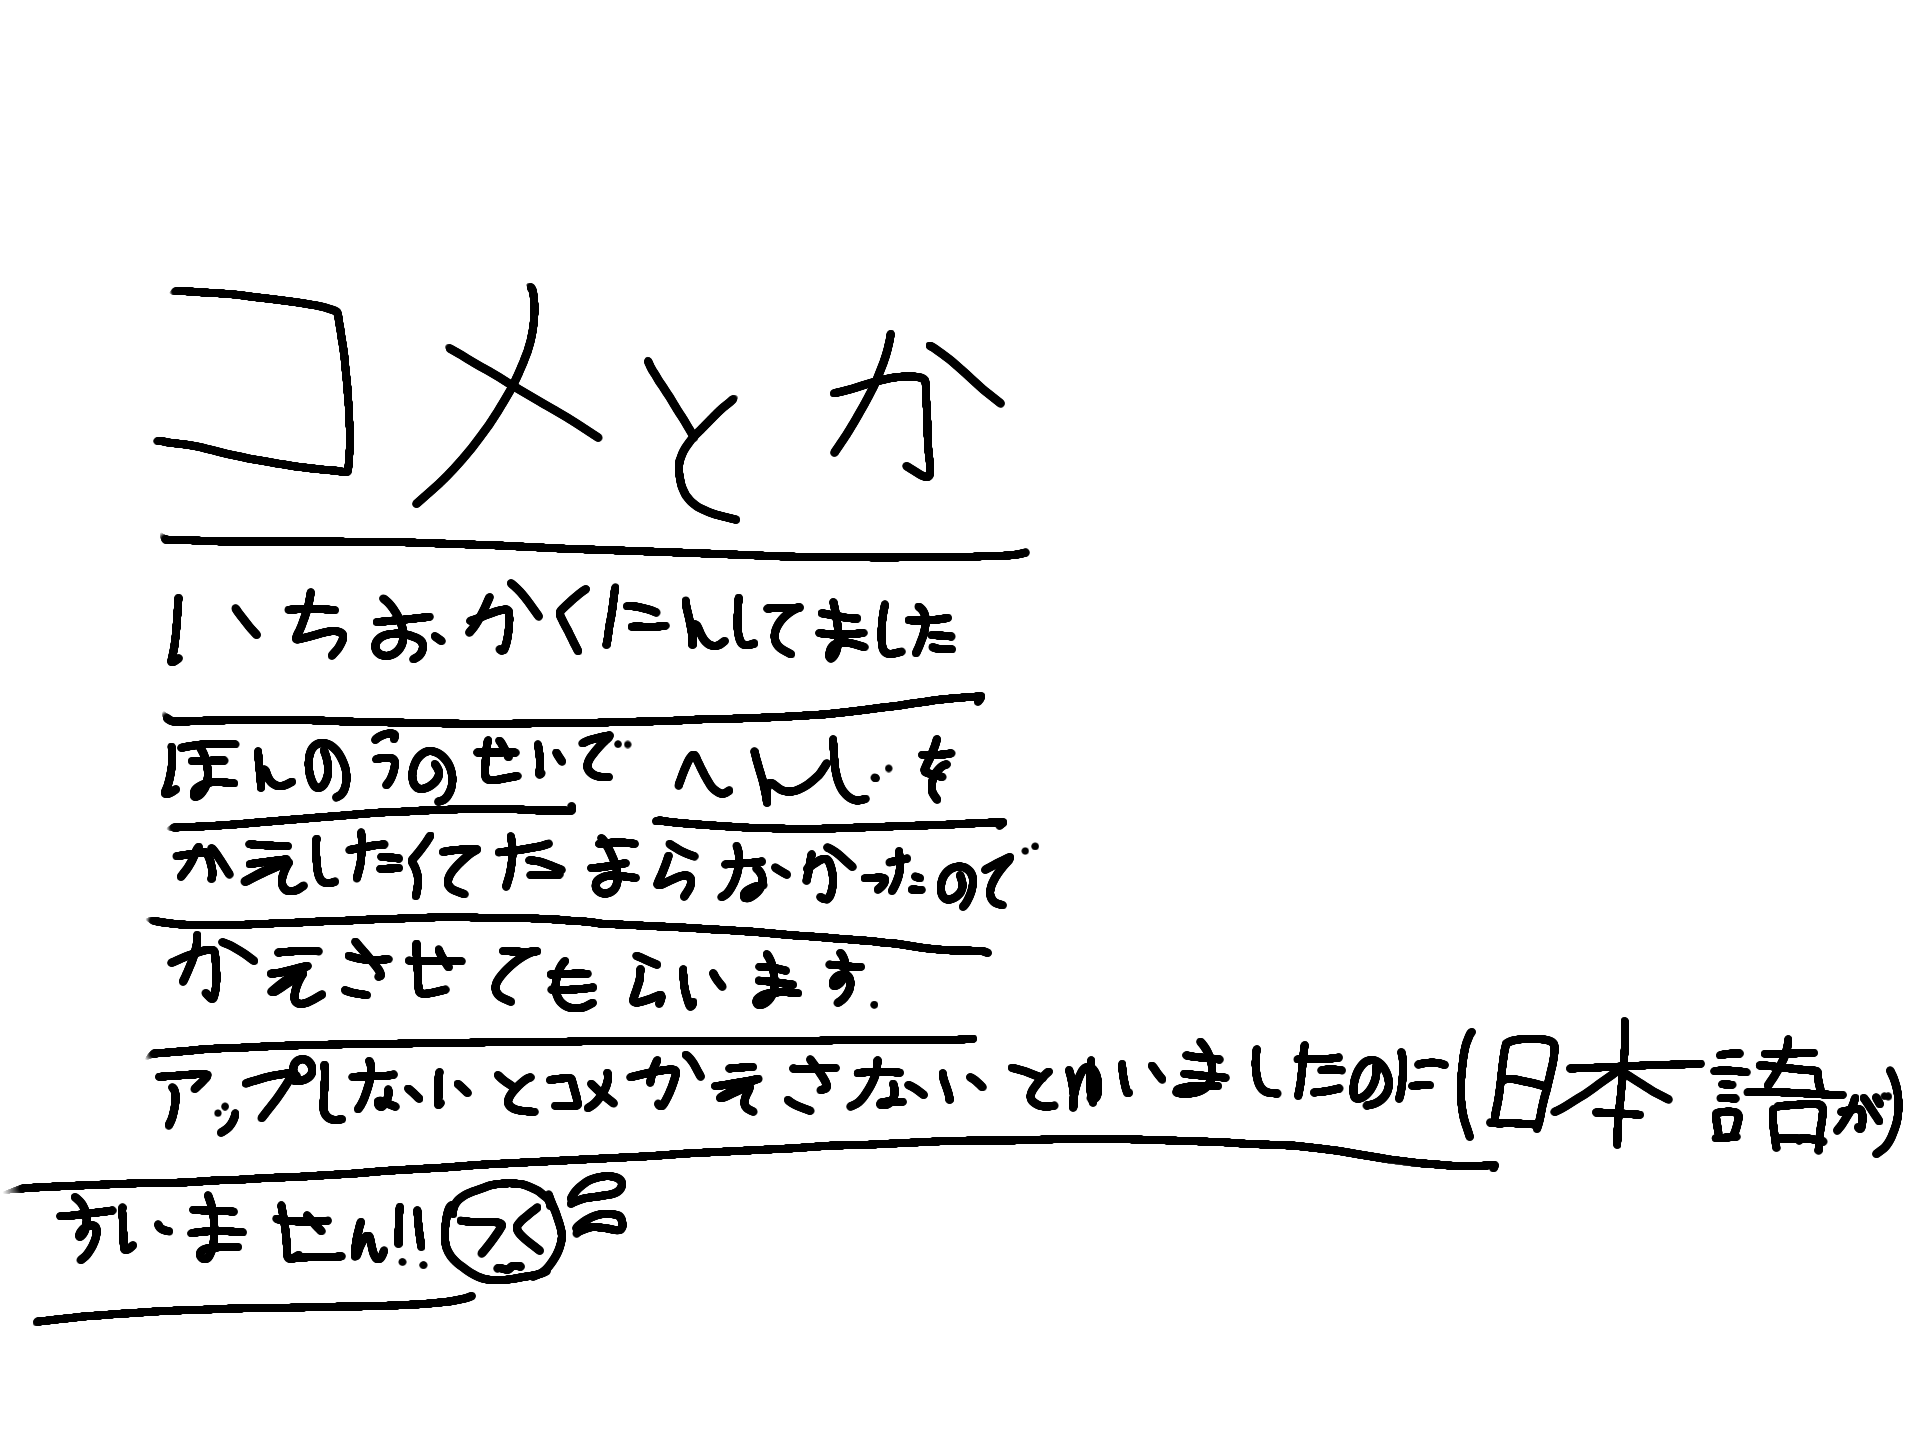 コメとか
いちおかくにんしてました
ほんのうのせいで へんじを
かえしたくてたまらなかったので
かえさせてもらいます.
アップしないとコメかえさないとかいいましたのに(日本語が)
すいません!!